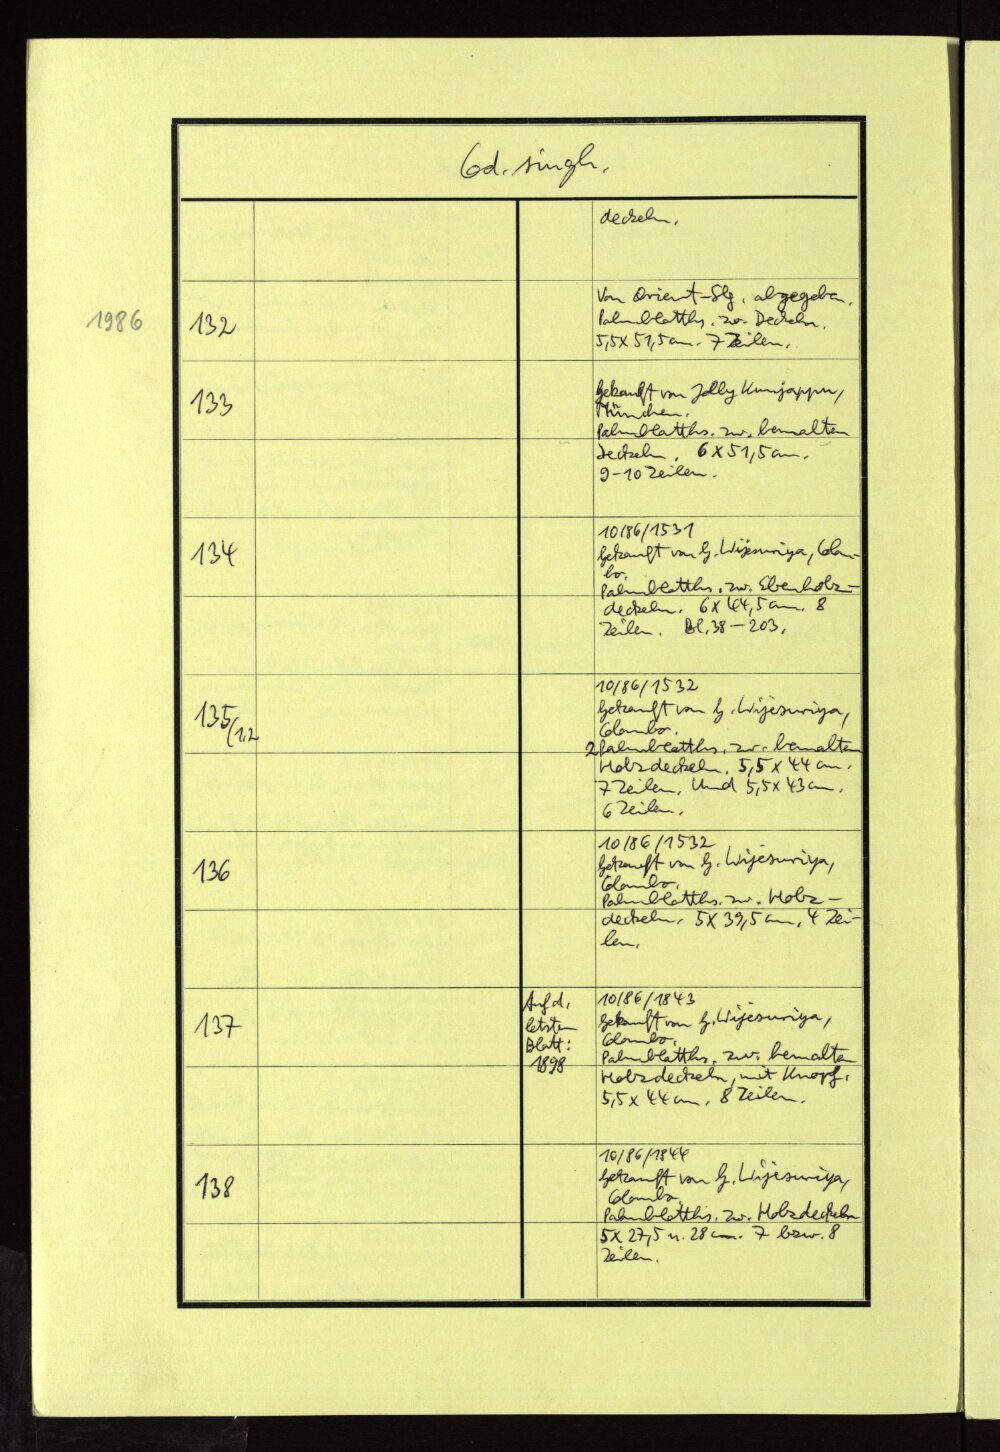 Cod. singh.
deckeln.
1986
132
Von Orient-Slg. abgegeben.
Palmblatths. zw. Deckeln.
5,5 x 51,5 cm. 7 Zeilen.
133
Gekauft von Jolly Kunjappu,
München.
Palmblatths. zw. bemalten
Deckeln. 6 x 51,5 cm.
9-10 Zeilen.
134
10/86/1531
Gekauft von G. Wijesuriya, Colom-
bo.
Palmblatths. zw. Ebenholz-
deckeln. 6 x 44,5 cm. 8
Zeilen. Bl. 38-203.
135/1,2
10/86/1532
Gekauft von G. Wijesuriya,
Colombo.
2 Palmblatths. zw. bemalten
Holzdeckeln. 5,5 x 44 cm.
7 Zeilen. Und 5,5 x 43 cm.
6 Zeilen.
136
10/86/1532
Gekauft von G. Wijesuriya,
Colombo.
Palmblatths. zw. Holz-
deckeln. 5 x 39,5 cm. 4 Zei-
len.
137
Auf d.
letzten
Blatt:
1898
10/86/1843
Gekauft von G. Wijesuriya,
Colombo.
Palmblatths. zw. bemalten
Holzdeckeln, mit Knopf.
5,5 x 44 cm. 8 Zeilen.
138
10/86/1844
Gekauft von G. Wijesuriya,
Colombo.
Palmblatths. zw. Holzdeckeln
5 x 27,5 u. 28 cm. 7 bzw. 8
Zeilen.